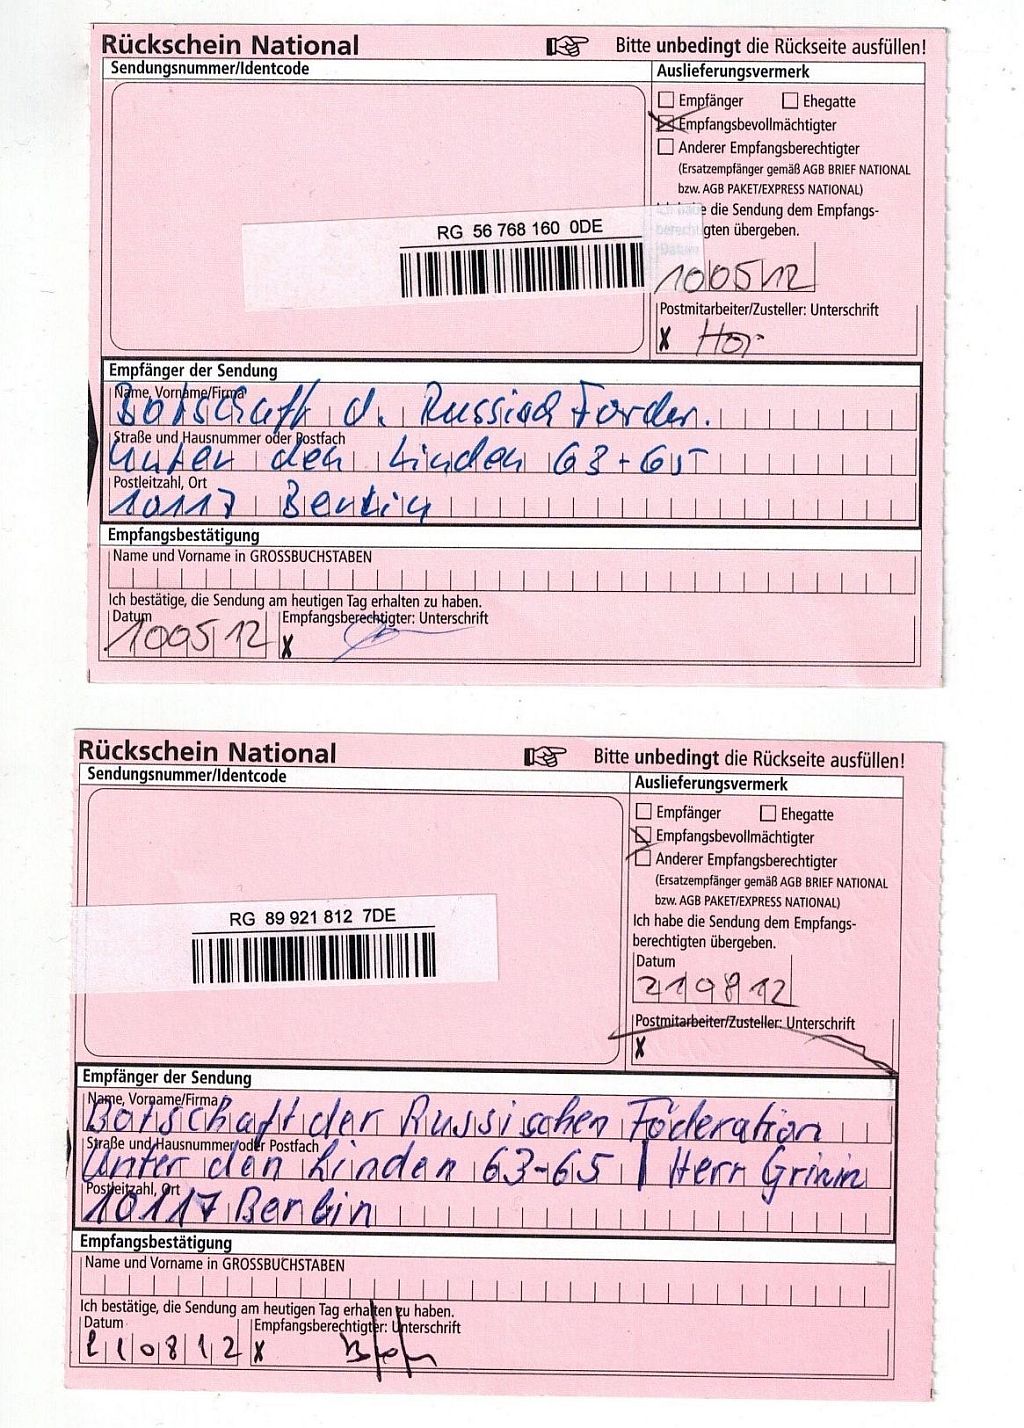 Rückschein National
Bitte unbedingt die Rückseite ausfüllen!
Sendungsnummer/Identcode
Auslieferungsvermerk
Empfänger Ehegatte
Empfangsbevollmächtigter
Anderer Empfangsberechtigter
(Ersatzempfänger gemäß AGB BRIEF NATIONAL
bzw. AGB PAKET/EXPRESS NATIONAL)
Ich habe die Sendung dem Empfangs-
berechtigten übergeben.
Datum
RG 56 768 160 0DE
100512
Postmitarbeiter/Zusteller: Unterschrift
X Hor
Empfänger der Sendung
Name, Vorname/Firma
Botschaft d. Russisch Forder.
Straße und Hausnummer oder Postfach
Unter den Linden 63-65
Postleitzahl, Ort
10117 Berlin
Empfangsbestätigung
Name und Vorname in GROSSBUCHSTABEN
Ich bestätige, die Sendung am heutigen Tag erhalten zu haben.
Datum Empfangsberechtigter: Unterschrift
100512 X
Rückschein National
Bitte unbedingt die Rückseite ausfüllen!
Sendungsnummer/Identcode
Auslieferungsvermerk
Empfänger Ehegatte
Empfangsbevollmächtigter
Anderer Empfangsberechtigter
(Ersatzempfänger gemäß AGB BRIEF NATIONAL
bzw. AGB PAKET/EXPRESS NATIONAL)
Ich habe die Sendung dem Empfangs-
berechtigten übergeben.
Datum
RG 89 921 812 7DE
210812
Postmitarbeiter/Zusteller: Unterschrift
X
Empfänger der Sendung
Name, Vorname/Firma
Botschaft der Russischen Föderation
Straße und Hausnummer oder Postfach
Unter den Linden 63-65 | Herr Grinin
Postleitzahl, Ort
10117 Berlin
Empfangsbestätigung
Name und Vorname in GROSSBUCHSTABEN
Ich bestätige, die Sendung am heutigen Tag erhalten zu haben.
Datum Empfangsberechtigter: Unterschrift
210812 X